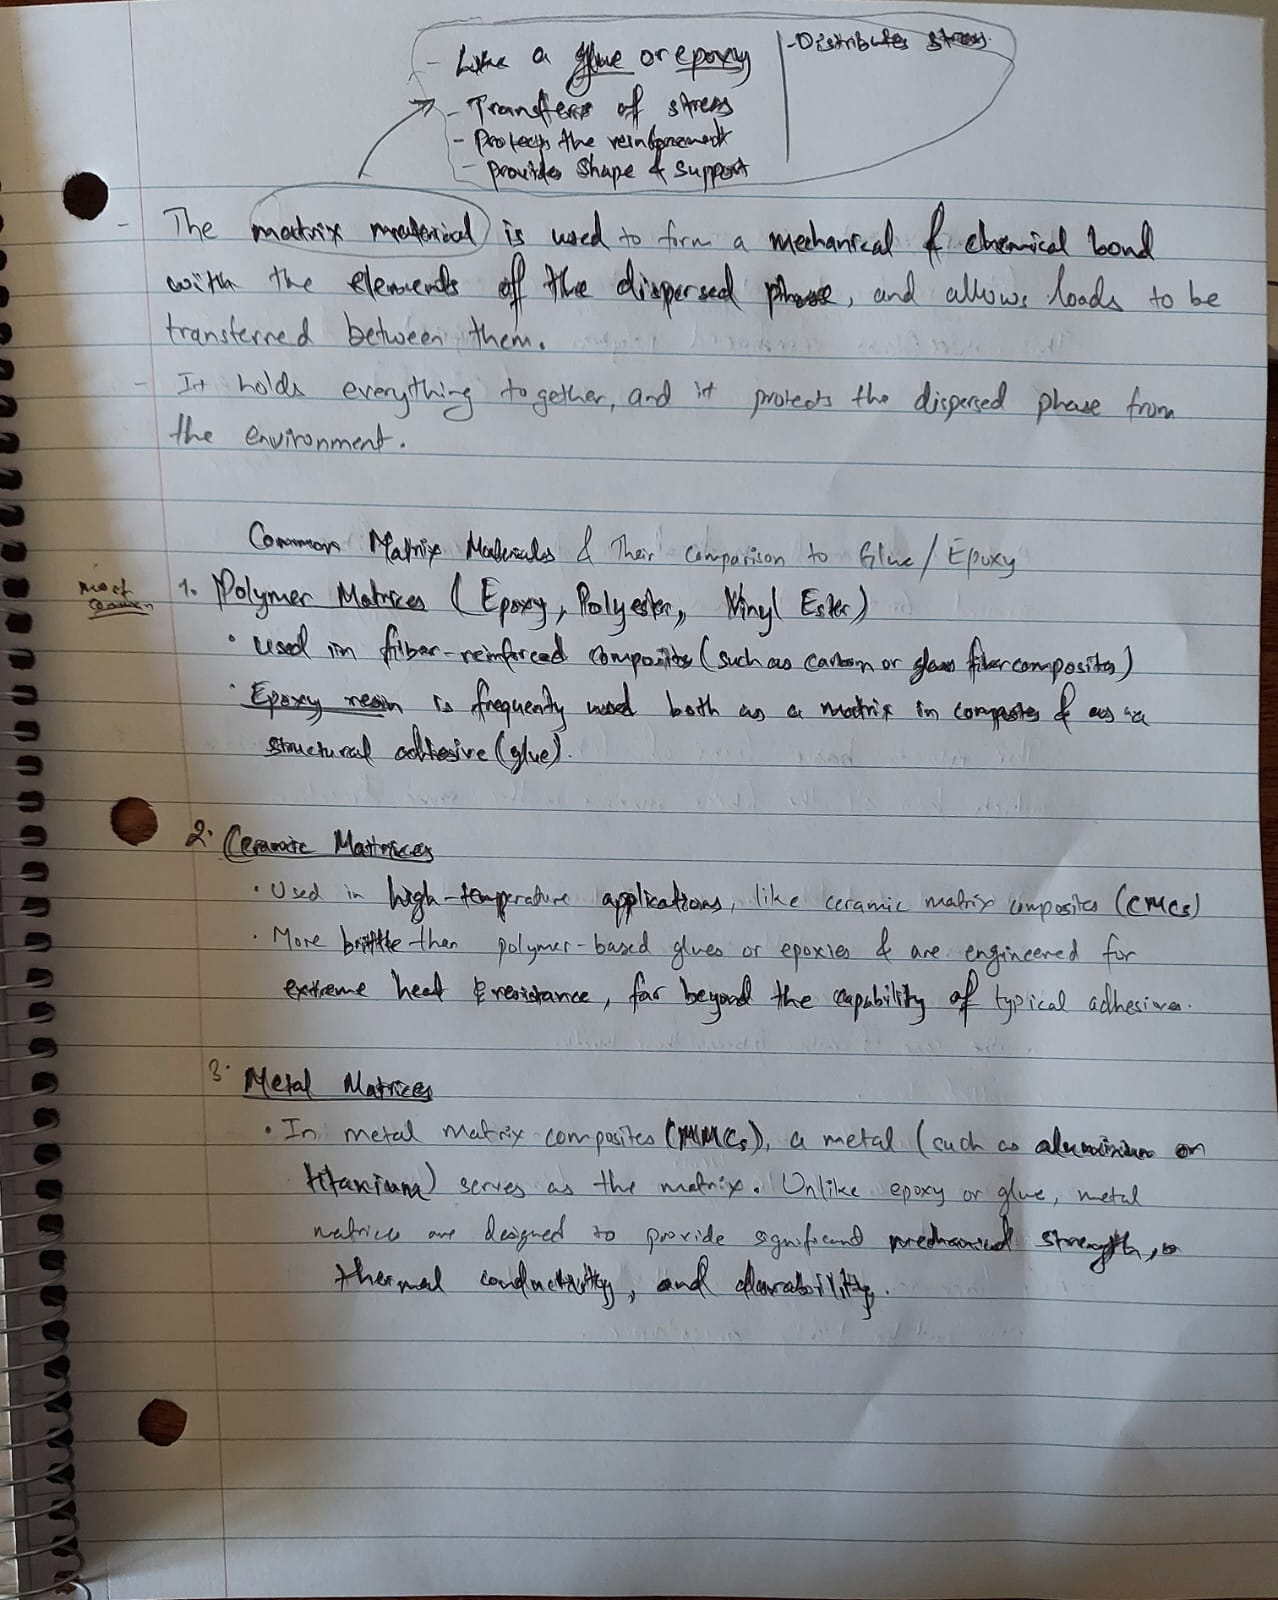 - Like a glue or epoxy
- Transfers of stress
- Protects the reinforcement
- Provides Shape & Support
- Distributes stress.
- The matrix material is used to form a mechanical & chemical bond
with the elements of the dispersed phase, and allows loads to be
transferred between them.
- It holds everything together, and it protects the dispersed phase from
the environment.
Common Matrix Materials & Their comparison to Glue/Epoxy
most
common
1. Polymer Matrices (Epoxy, Polyester, Vinyl Ester)
• Used in fiber-reinforced composites (such as carbon or glass fiber composites)
• Epoxy resin is frequently used both as a matrix in composites & as a
structural adhesive (glue).
2. Ceramic Matrices
• Used in high-temperature applications, like ceramic matrix composites (CMCs)
• More brittle than polymer-based glues or epoxies & are engineered for
extreme heat resistance, far beyond the capability of typical adhesives.
3. Metal Matrices
• In metal matrix composites (MMCs), a metal (such as aluminium or
titanium) serves as the matrix. Unlike epoxy or glue, metal
matrices are designed to provide significant mechanical strength,
thermal conductivity, and durability.